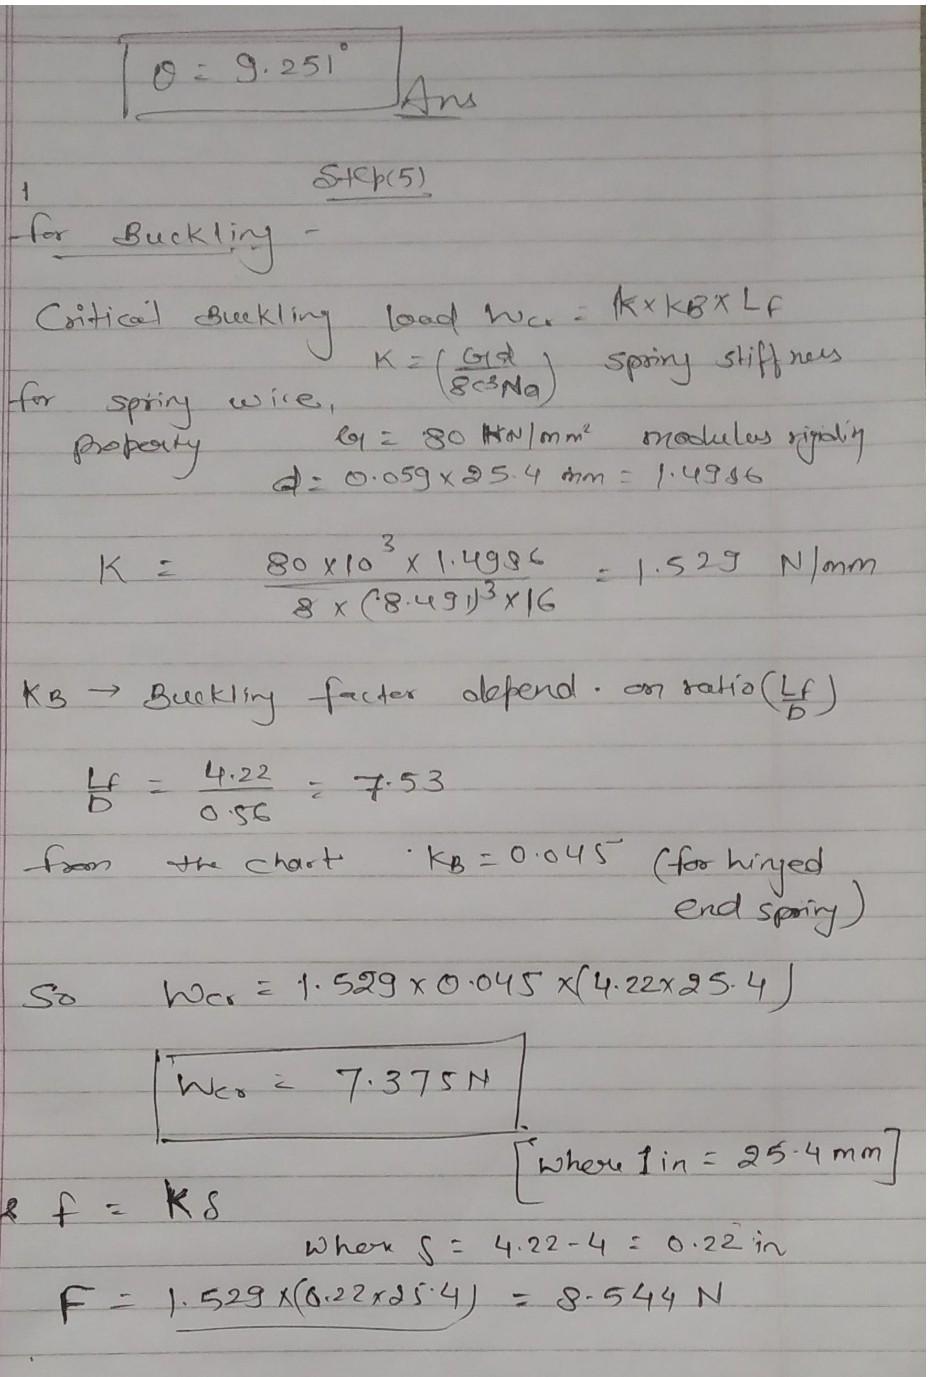 θ = 9.251°
Ans
Step(5)
1
for Buckling -
Critical Buckling load Wcr = K x KB x Lf
K = (Gd / 8C³Na) spring stiffness
for spring wire,
property G = 80 KN/mm² modulus rigidity
d = 0.059 x 25.4 mm = 1.4986
K = 80 x 10³ x 1.4986 / 8 x (8.491)³ x 16 = 1.529 N/mm
KB → Buckling factor depend . on ratio (Lf/D)
Lf/D = 4.22/0.56 = 7.53
from the chart KB = 0.045 (for hinged
end spring)
So Wcr = 1.529 x 0.045 x (4.22 x 25.4)
Wcr = 7.375 N
[where 1 in = 25.4 mm]
& f = Kδ
where δ = 4.22 - 4 = 0.22 in
F = 1.529 x (0.22 x 25.4) = 8.544 N